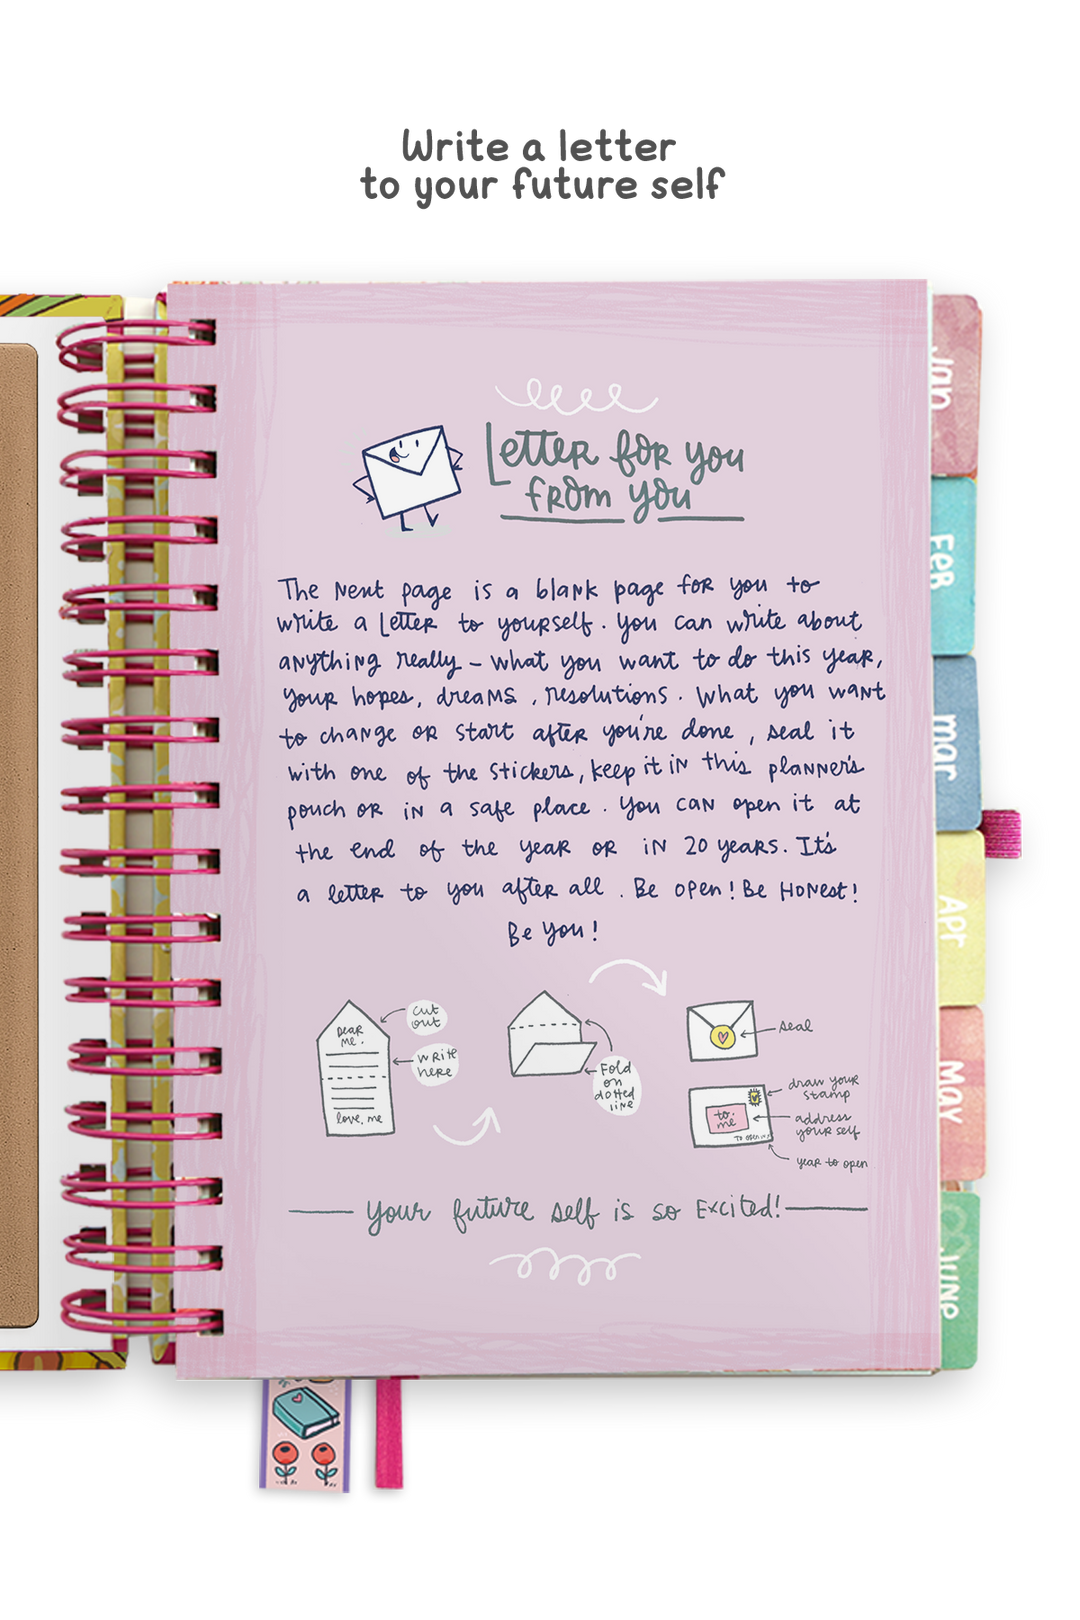 Write a letter
to your future self
Letter for you
from you
The Next page is a blank page for you to
write a letter to yourself. You can write about
anything really - what you want to do this year,
your hopes, dreams, resolutions. What you want
to change or start after you're done, seal it
with one of the stickers, keep it in this planner's
pouch or in a safe place. You can open it at
the end of the year or in 20 years. It's
a letter to you after all. Be open! Be Honest!
Be You!
Dear
me,
love, me
cut
out
write
here
Fold
on
dotted
line
seal
to:
me
To open in
draw your
stamp
address
your self
year to open
Your future self is so Excited!
Jan
Feb
Mar
Apr
May
June